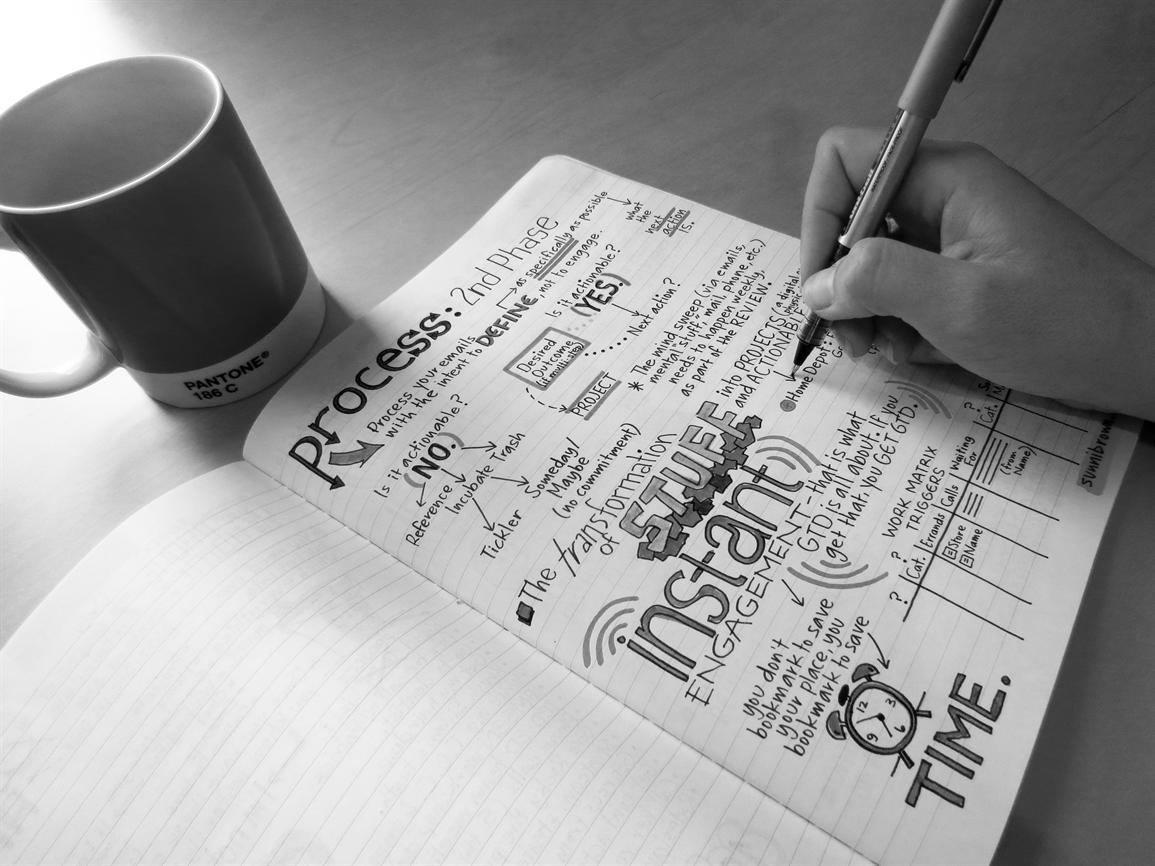 PANTONE®
186 C
Process: 2nd Phase
Process your emails
with the intent to DEFINE,
as specifically as possible
not to engage.
what
the
next
action
is.
Is it actionable?
(NO.)
Reference
Incubate
Trash
Tickler
Someday/
Maybe
(no commitment)
Is it actionable?
(YES.)
Next action?
Desired
Outcome
PROJECT
* The mind sweep (via emails,
mental "stuff," mail, phone, etc.)
needs to happen weekly,
as part of the REVIEW.
The transformation
of
STUFF
into PROJECTS
and ACTIONABLE
(a digital
Home Depot:
instant
ENGAGEMENT - that is what
GTD is all about. If you
get that, you GET GTD.
you don't
bookmark to save
your place, you
bookmark to save
TIME.
12
3
6
9
WORK MATRIX
TRIGGERS
? Cat. Errands Calls Waiting For ? Cat.
?
Store
Name
(from
Name)
sunnibrown